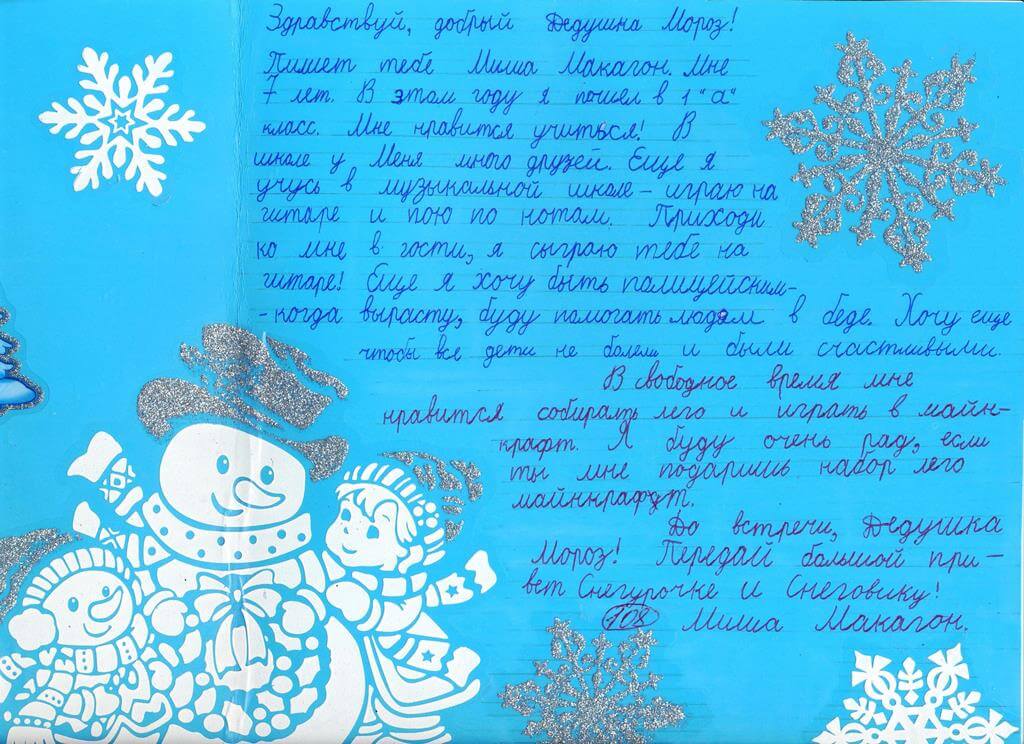 Здравствуй, добрый Дедушка Мороз!
Пишет тебе Миша Макагон. Мне
7 лет. В этом году я пошел в 1 "а"
класс. Мне нравится учиться! В
школе у меня много друзей. Еще я
учусь в музыкальной школе - играю на
гитаре и пою по нотам. Приходи
ко мне в гости, я сыграю тебе на
гитаре! Еще я хочу быть полицейским-
-когда вырасту, буду помогать людям в беде. Хочу еще
чтобы все дети не болели и были счастливыми.
В свободное время мне
нравится собирать лего и играть в майн-
крафт. Я буду очень рад, если
ты мне подаришь набор лего
майнкрафт.
До встречи, Дедушка
Мороз! Передай большой при-
вет Снегурочке и Снеговику!
108 Миша Макагон.